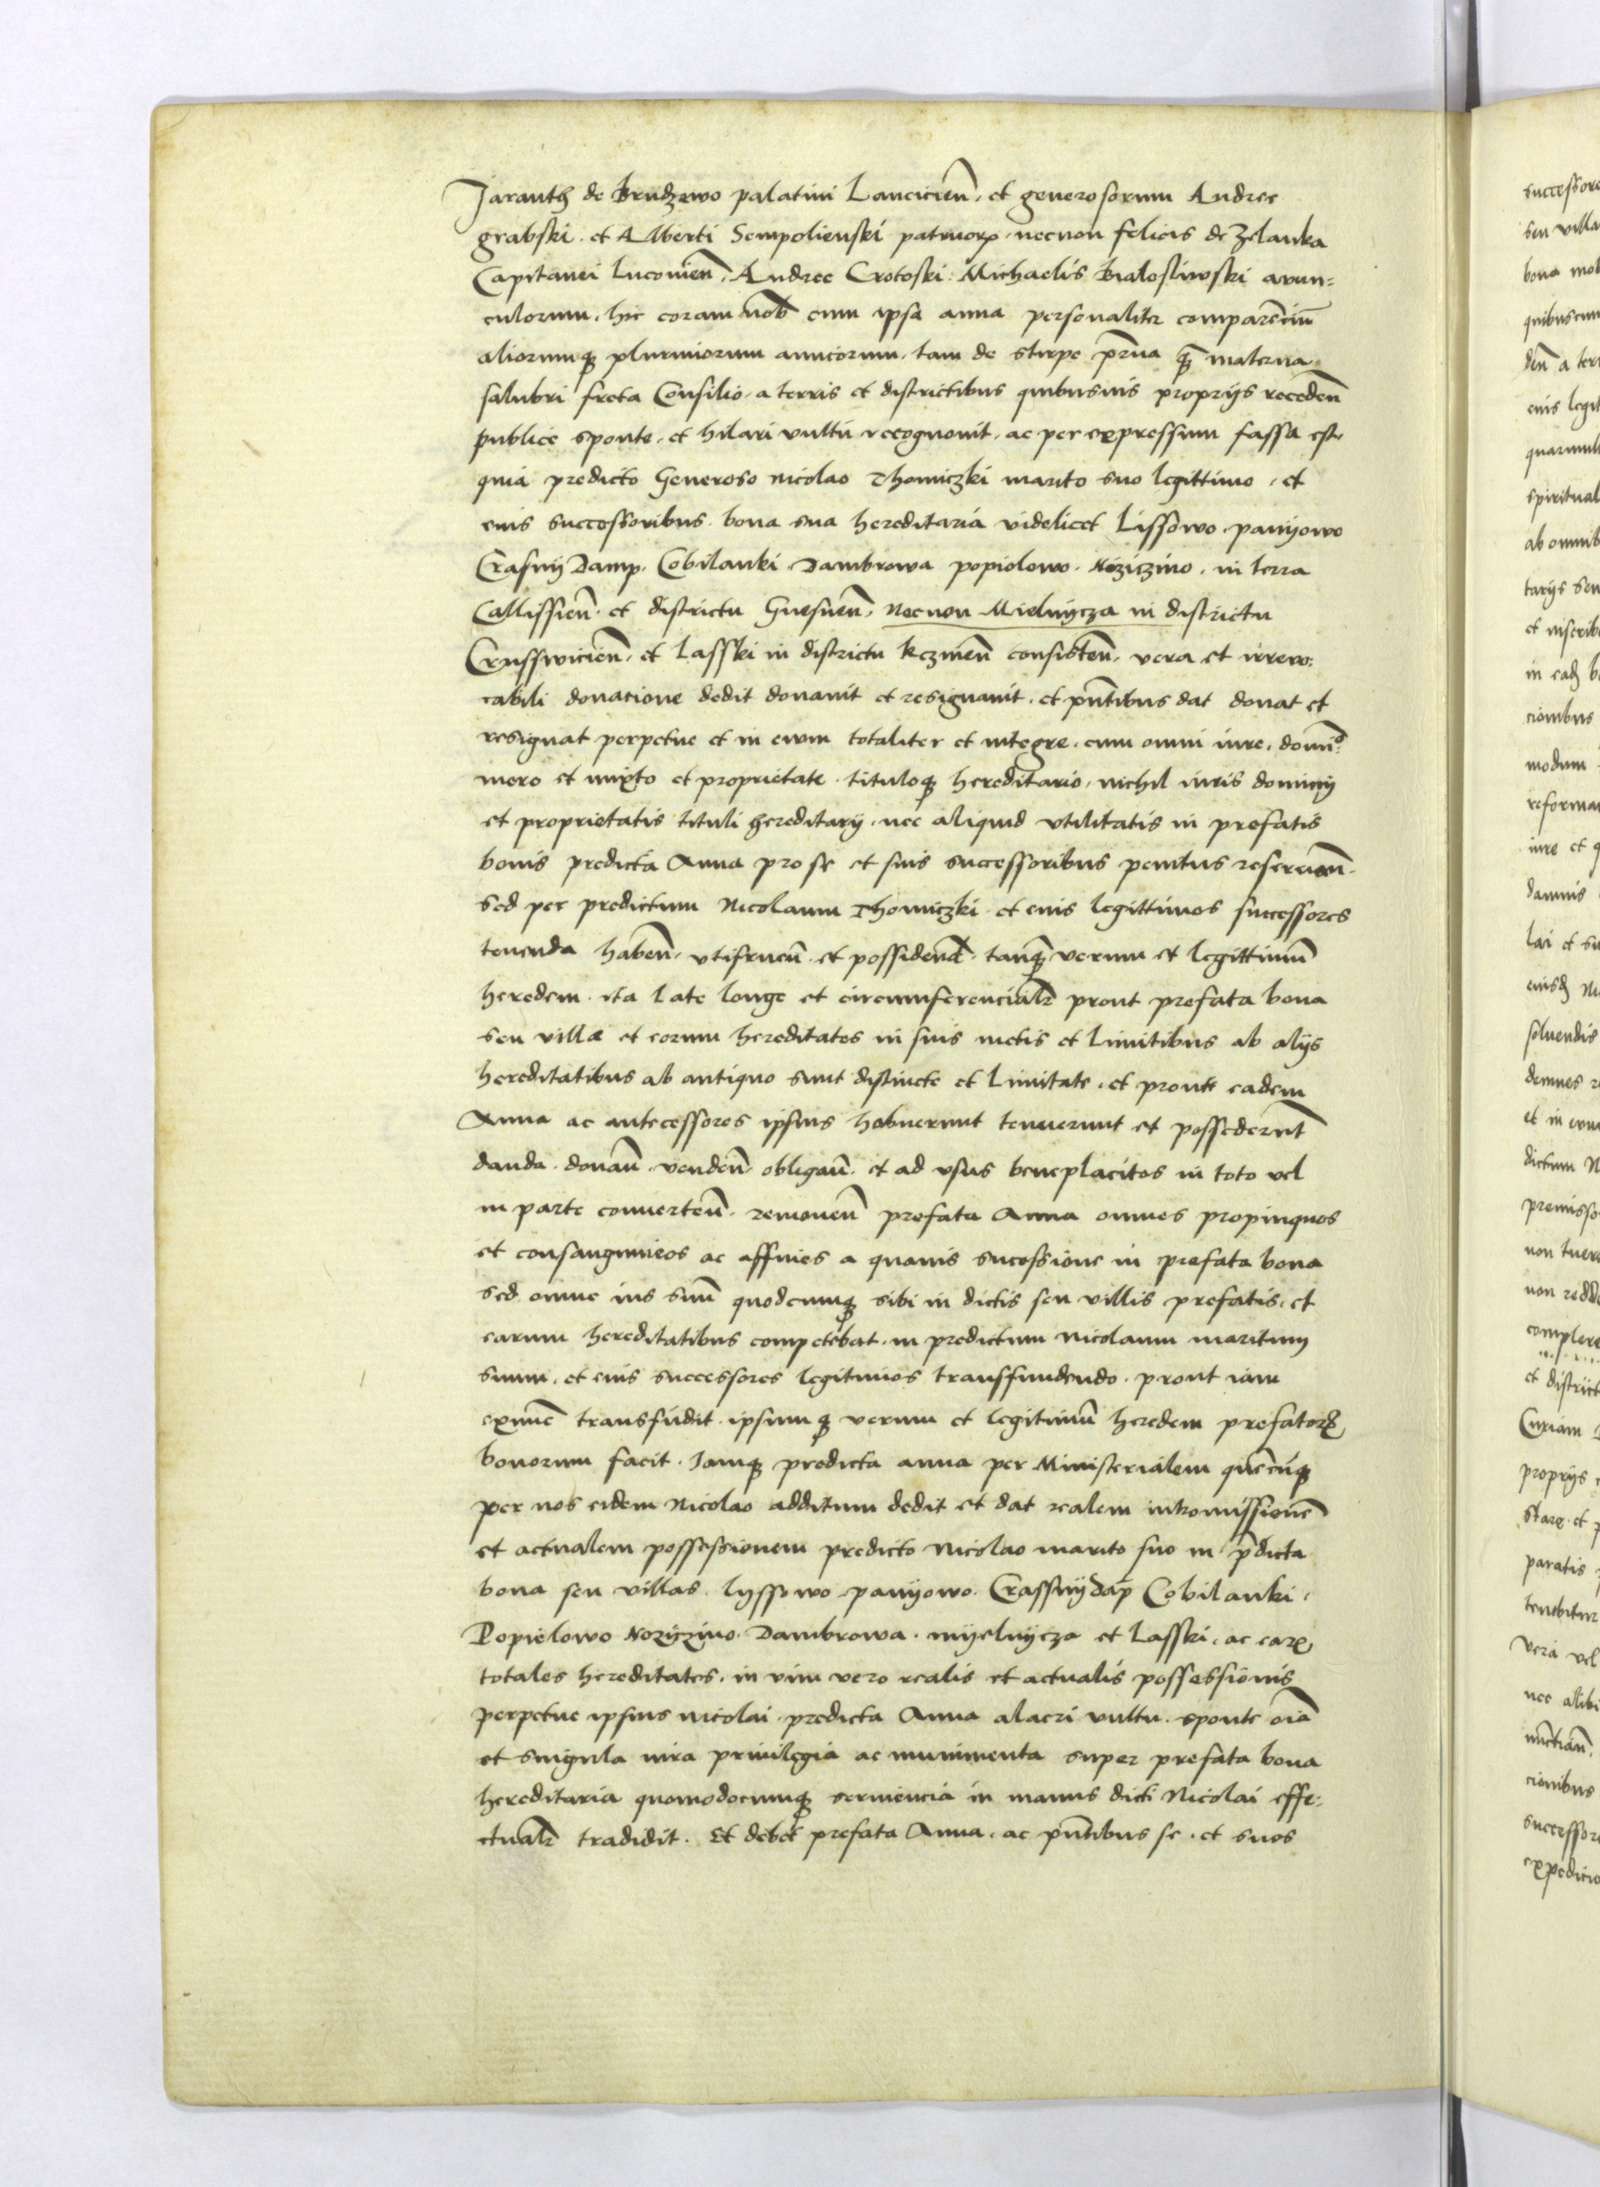 Jaranth de Brudzewo palatini Lancicieñ. et generosorum Andree
grabski. et Alberti Sempolienski patruorꝝ. necnon felicis de Zelanka
Capitanei Lucovieñ. Andree Crotoski. Michaelis Bialosliwski avun=
culorum. hic coram nob̄ cum ipsa anna personaliter comparēciū
aliorumqꝫ plurimorum amicorum. tam de stirpe pr̄na qꝫ materna
salubri freta Consilio. a terris et districtibus quibusuis proprijs recedeñ
publice sponte. et hilari vultu recognouit. ac per expressum fassa est.
quia predicto Generoso Nicolao Thomiczki marito suo legittimo. et
eius successoribus. bona sua hereditaria videlicet Lissowo. panyowo
Crasny Damp. Cobilanki. Dambrowa popiolowo. Koziczino. in terra
Callissieñ. et districtu Gnesneñ. Necnon Mielnycza in districtu
Crusswicieñ. et Lasski in districtu Kczineñ consisteñ. vera et irreuo:
cabili donacione dedit donauit et resignauit. et pn̄tibus dat donat et
resignat perpetue et in ewm totaliter et integre. cum omni iure. domiᵒ
mero et mixto et proprietate. tituloqꝫ hereditario. nichil iuris dominij
et proprietatis tituli hereditarij. nec aliquid vtilitatis in prefatis
bonis predicta Anna pro se et suis successoribus penitus reserueñ.
Sed per predictum Nicolaum Thomiczki. et eius legittimos successores
tenenda habeñ. vtifrueñ. et possidend̄. tanqꝫ verum et legittimū
heredem. ita late longe et circumferencialr̄ prout prefata bona
seu villæ et eorum hereditates in suis metis et limitibus ab alijs
hereditatibus ab antiquo sunt distincte et limitate. et proute eadem
Anna ac antecessores ipsius habuerunt tenuerunt et possederūt
danda. donañ. vendeñ. obligañ. et ad vsus beneplacitos in toto vel
in parte conuerteñ. remoueñ prefata Anna omnes propinquos
et consanguineos ac affines a quauis sucessione in prefata bona
sed omne ius suū quodcumqꝫ sibi in dictis seu villis prefatis. et
earum hereditatibus competebat. in predictum nicolaum maritum
suum. et eius successores legitimos transfundendo. prout iam
exnūc transfudit. ipsumqꝫ verum et legitimū heredem prefatorꝝ
bonorum facit. Jamqꝫ predicta anna per Ministerialem quēcūqꝫ
per nos eidem Nicolao additum dedit et dat realem intromissionē
et actualem possessionem predicto Nicolao marito suo in p̄dicta
bona seu villas. lyssowo. panyowo. Crassnydāp Cobilanki.
Popielowo Koziczino. Dambrowa. myelnycza et Lasski. ac earꝝ
totales hereditates. in vim vero realis et actualis possessionis
perpetue ipsius nicolai. predicta Anna alacri vultu. sponte oīa
et singula iura priuilegia ac munimenta super prefata bona
hereditaria quomodocumqꝫ seruiencia in manus dicti Nicolai effe:
ctualr̄ tradidit. Et debet prefata Anna. ac pn̄tibus se. et suos